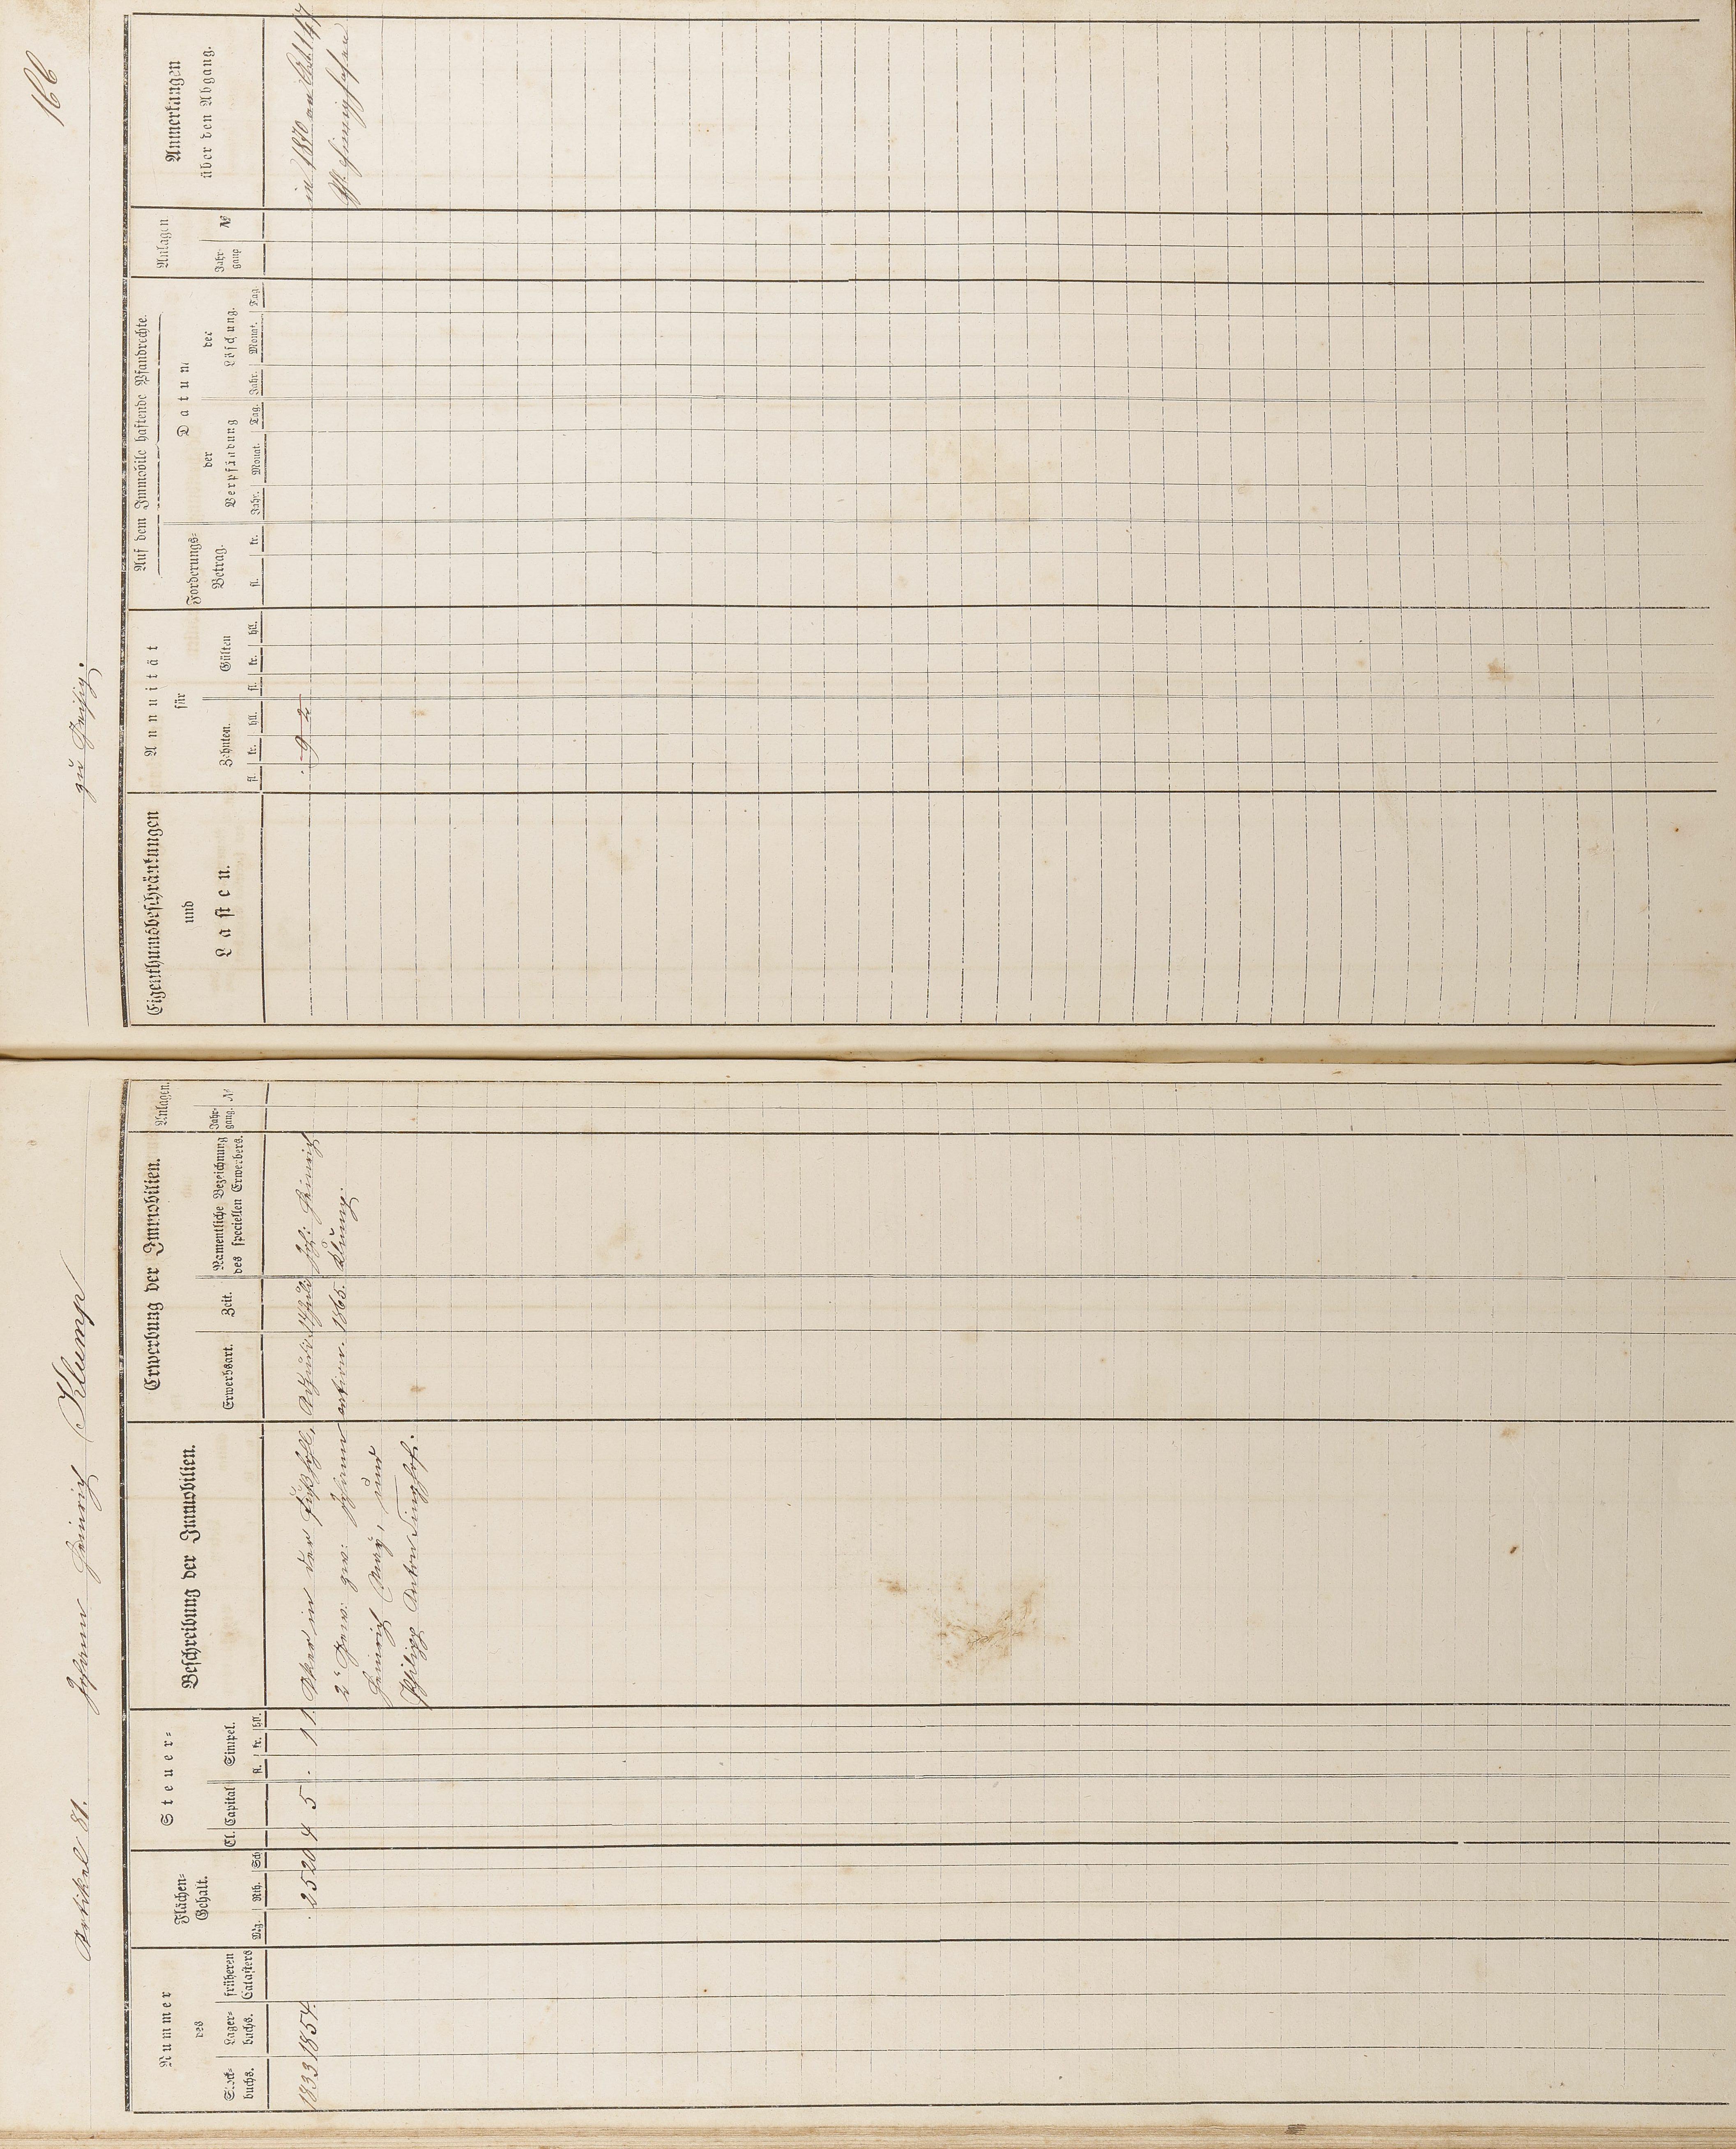 Artikel 81. Johann Heinrich Klump
zu Heisig.
166
Nummer
des
Stock-
buchs.
Lager-
buchs.
früheren
Catasters
Flächen-
Gehalt.
Mg. Rth. Sch.
Steuer-
Cl. Capital Simpel.
fl. kr. hll.
Beschreibung der Immobilien.
Erwerbung der Immobilien.
Erwerbsart.
Zeit.
Namentliche Bezeichnung
des speciellen Erwerbers.
Anlagen.
Jahr-
gang. №
1833 1854. . 25 20 4 5 . 1 1. Acker in der
2r Gew: zw: Johann
Heinrich May, und
Philipp Anton
1865. Klump.
Joh: Heinrich
Eigenthumsbeschränkungen
und
Lasten.
Annuität
für
Zehnten.
Gülten
fl. kr. hll. fl. kr. hll.
Auf dem Immobile haftende Pfandrechte.
Forderungs-
Betrag.
fl. kr.
Datum
der
Verpfändung
der
Löschung.
Jahr. Monat. Tag. Jahr. Monat. Tag.
Anlagen
Jahr-
gang
№
Anmerkungen
über den Abgang.
. 9 2
in 1870 an Art. 1147